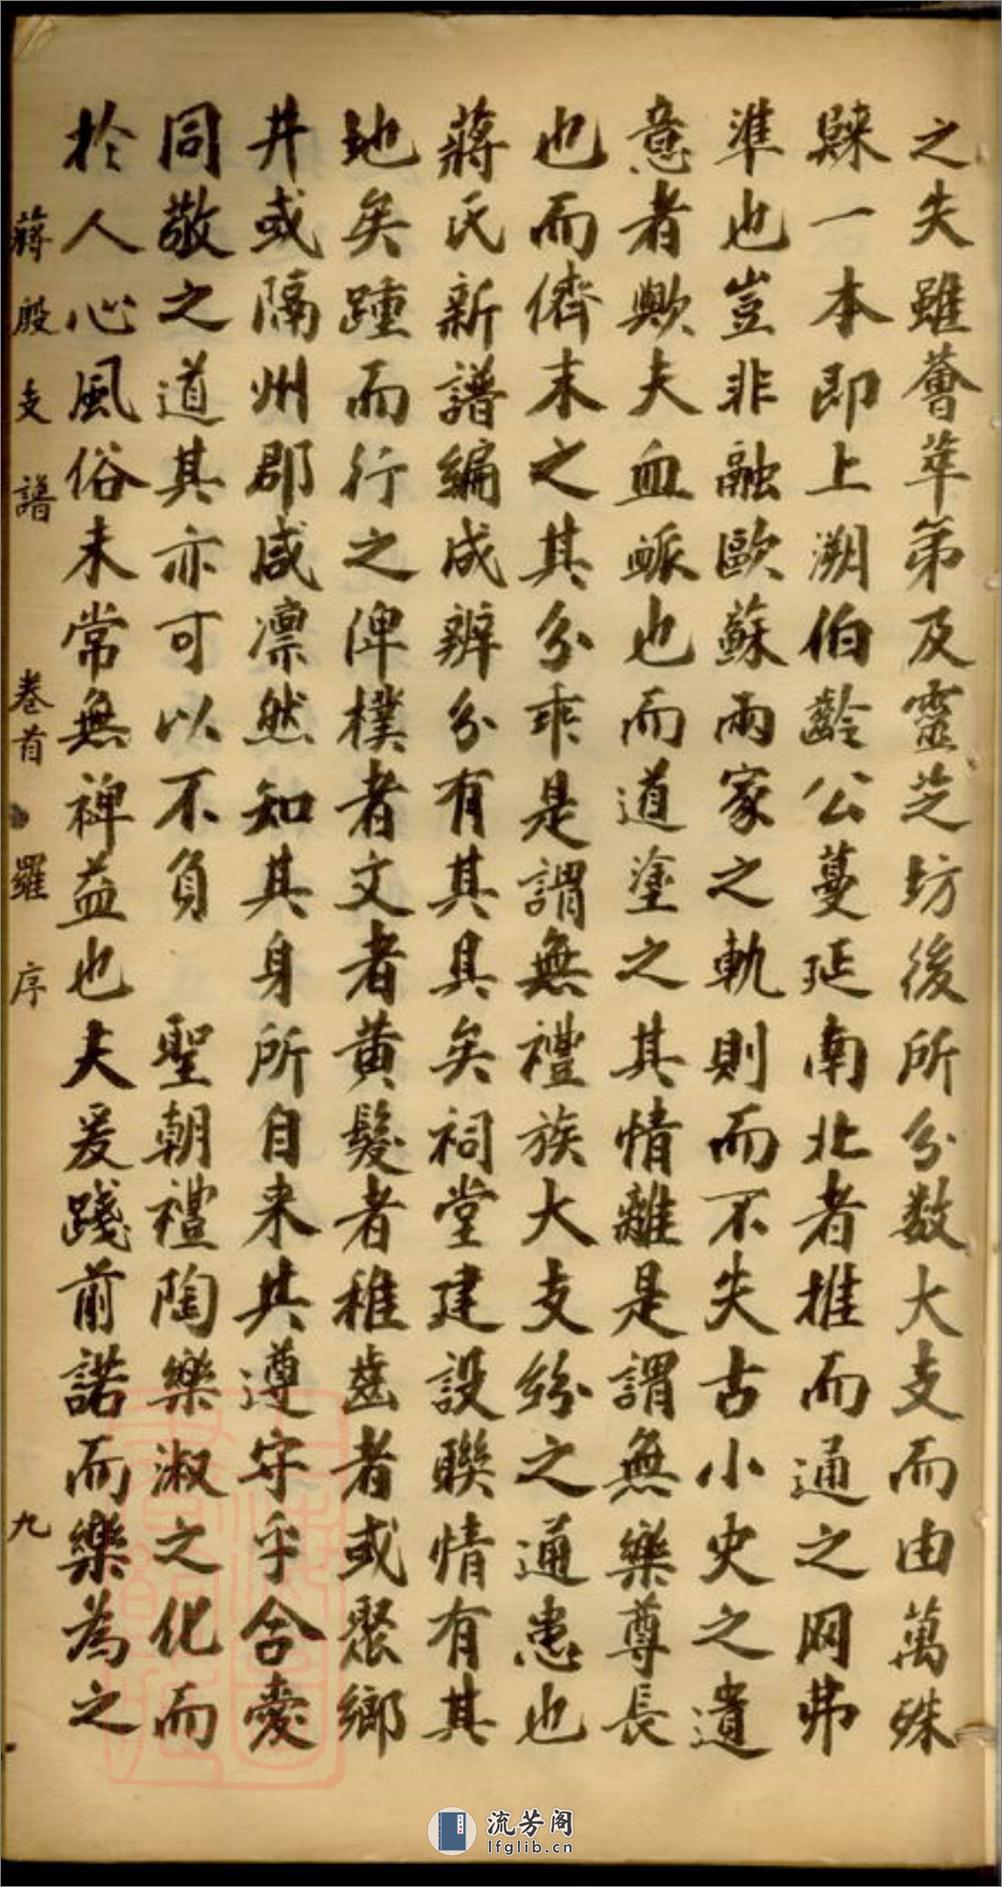 之失雖薈萃第及靈芝坊後所分數大支而由萬殊
歸一本即上溯伯齡公蔓延南北者推而通之罔弗
準也豈非融歐蘇兩家之軌則而不失古小史之遺
意者歟夫血脈也而道塗之其情離是謂無樂尊長
也而儕末之其分乖是謂無禮族大支紛之通患也
蔣氏新譜編成辨分有其具矣祠堂建設聯情有其
地矣踵而行之俾樸者文者黃髮者稚齒者或聚鄉
井或隔州郡咸凛然知其身所自来其遵守乎合愛
同敬之道其亦可以不負　聖朝禮陶樂淑之化而
於人心風俗未常無裨益也夫爰踐前諾而樂為之
蔣殿支譜　卷首　羅序　九
流芳阁
lfglib.cn